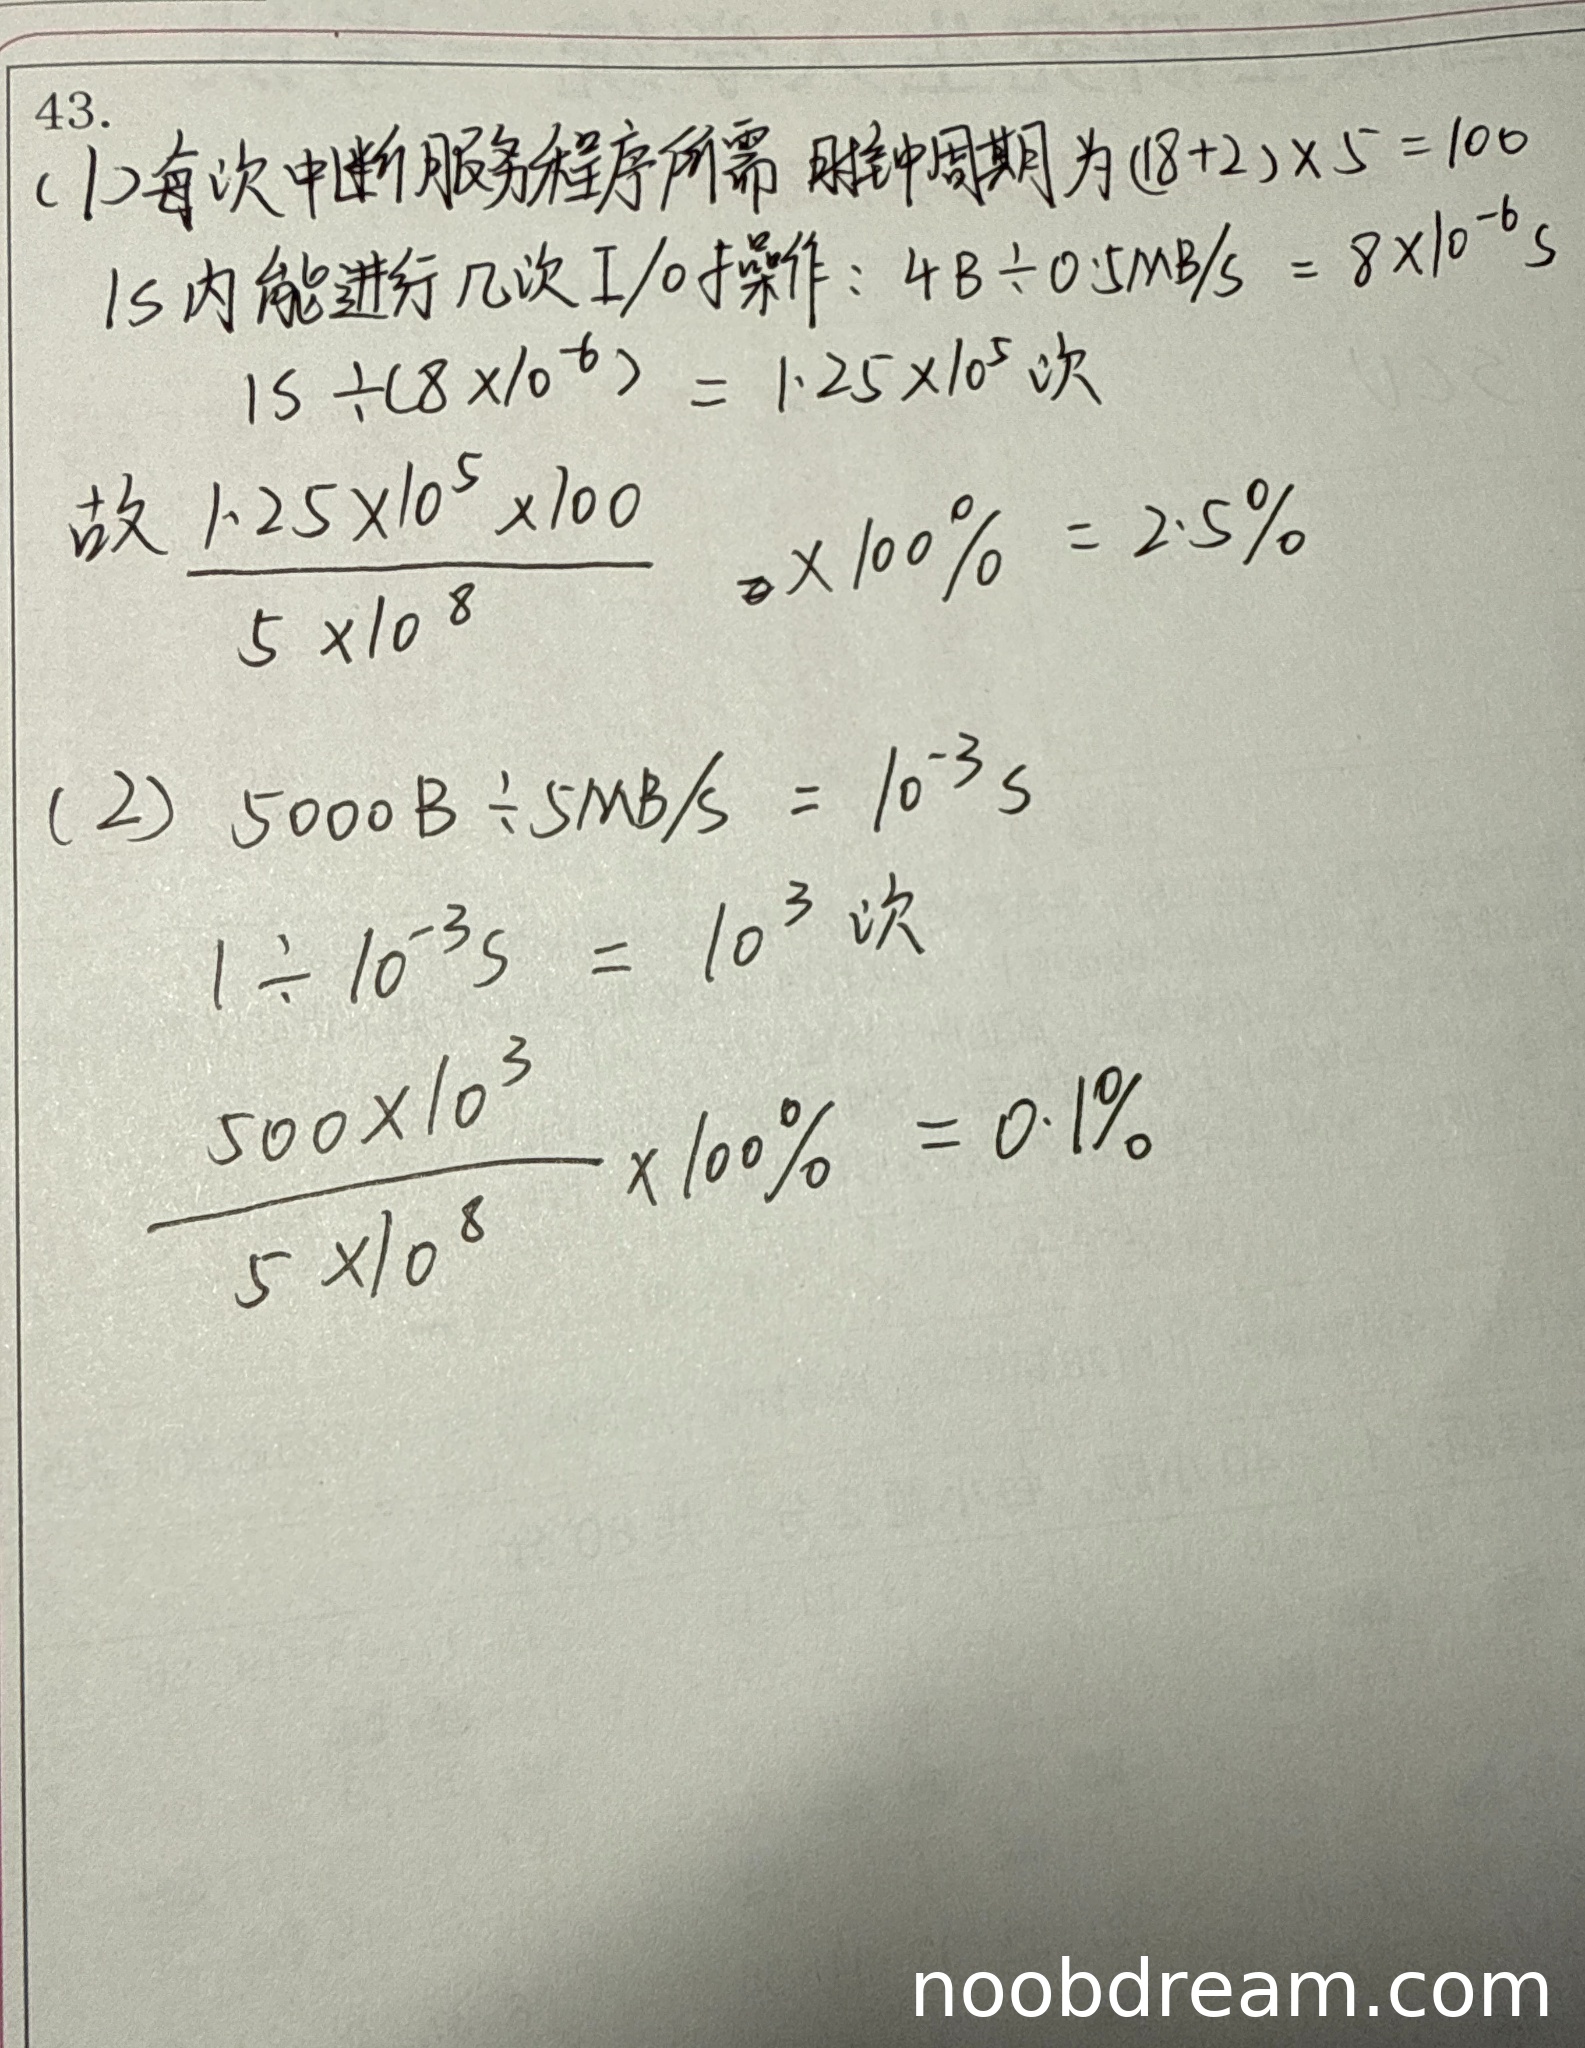 43.
(1)每次中断服务程序所需 时钟周期为(18+2)×5=100
1S内能进行几次I/O操作: 4B÷0.5MB/s = 8×10⁻⁶s
1S÷(8×10⁻⁶) = 1.25×10⁵次
故 1.25×10⁵×100 / 5×10⁸ ×100% = 2.5%
(2) 5000B÷5MB/s = 10⁻³s
1÷10⁻³s = 10³次
500×10³ / 5×10⁸ ×100% = 0.1%
noobdream.com